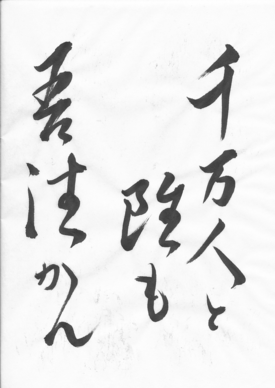 千万人と
雖も
吾往かん